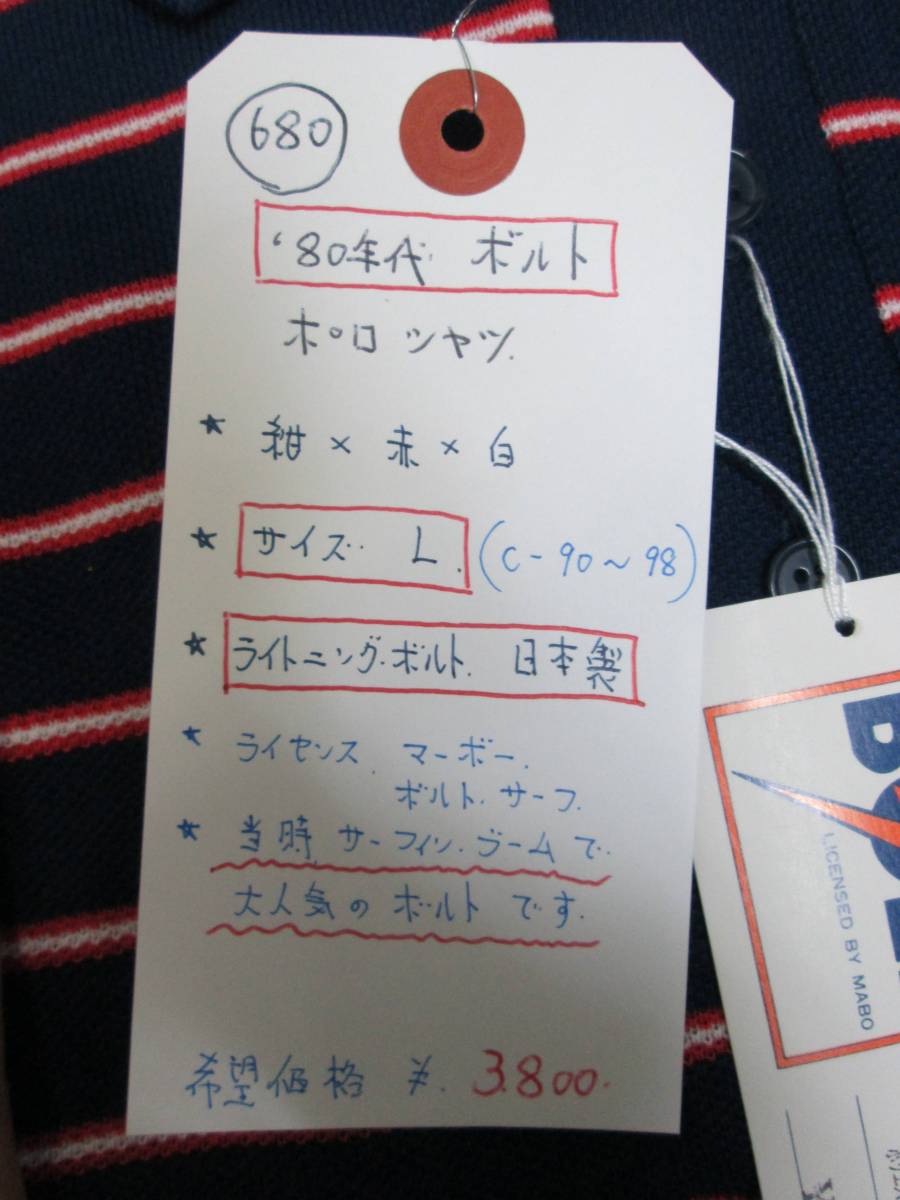 680
'80年代 ボルト
ポロシャツ.
★ 紺 × 赤 × 白
★ サイズ L. (C-90~98)
★ ライトニング.ボルト. 日本製
★ ライセンス. マーボー.
ボルト.サーフ.
★ 当時 サーフィン.ブームで.
大人気の ボルト です.
希望価格 ¥. 3.800.
LICENSED BY MABO